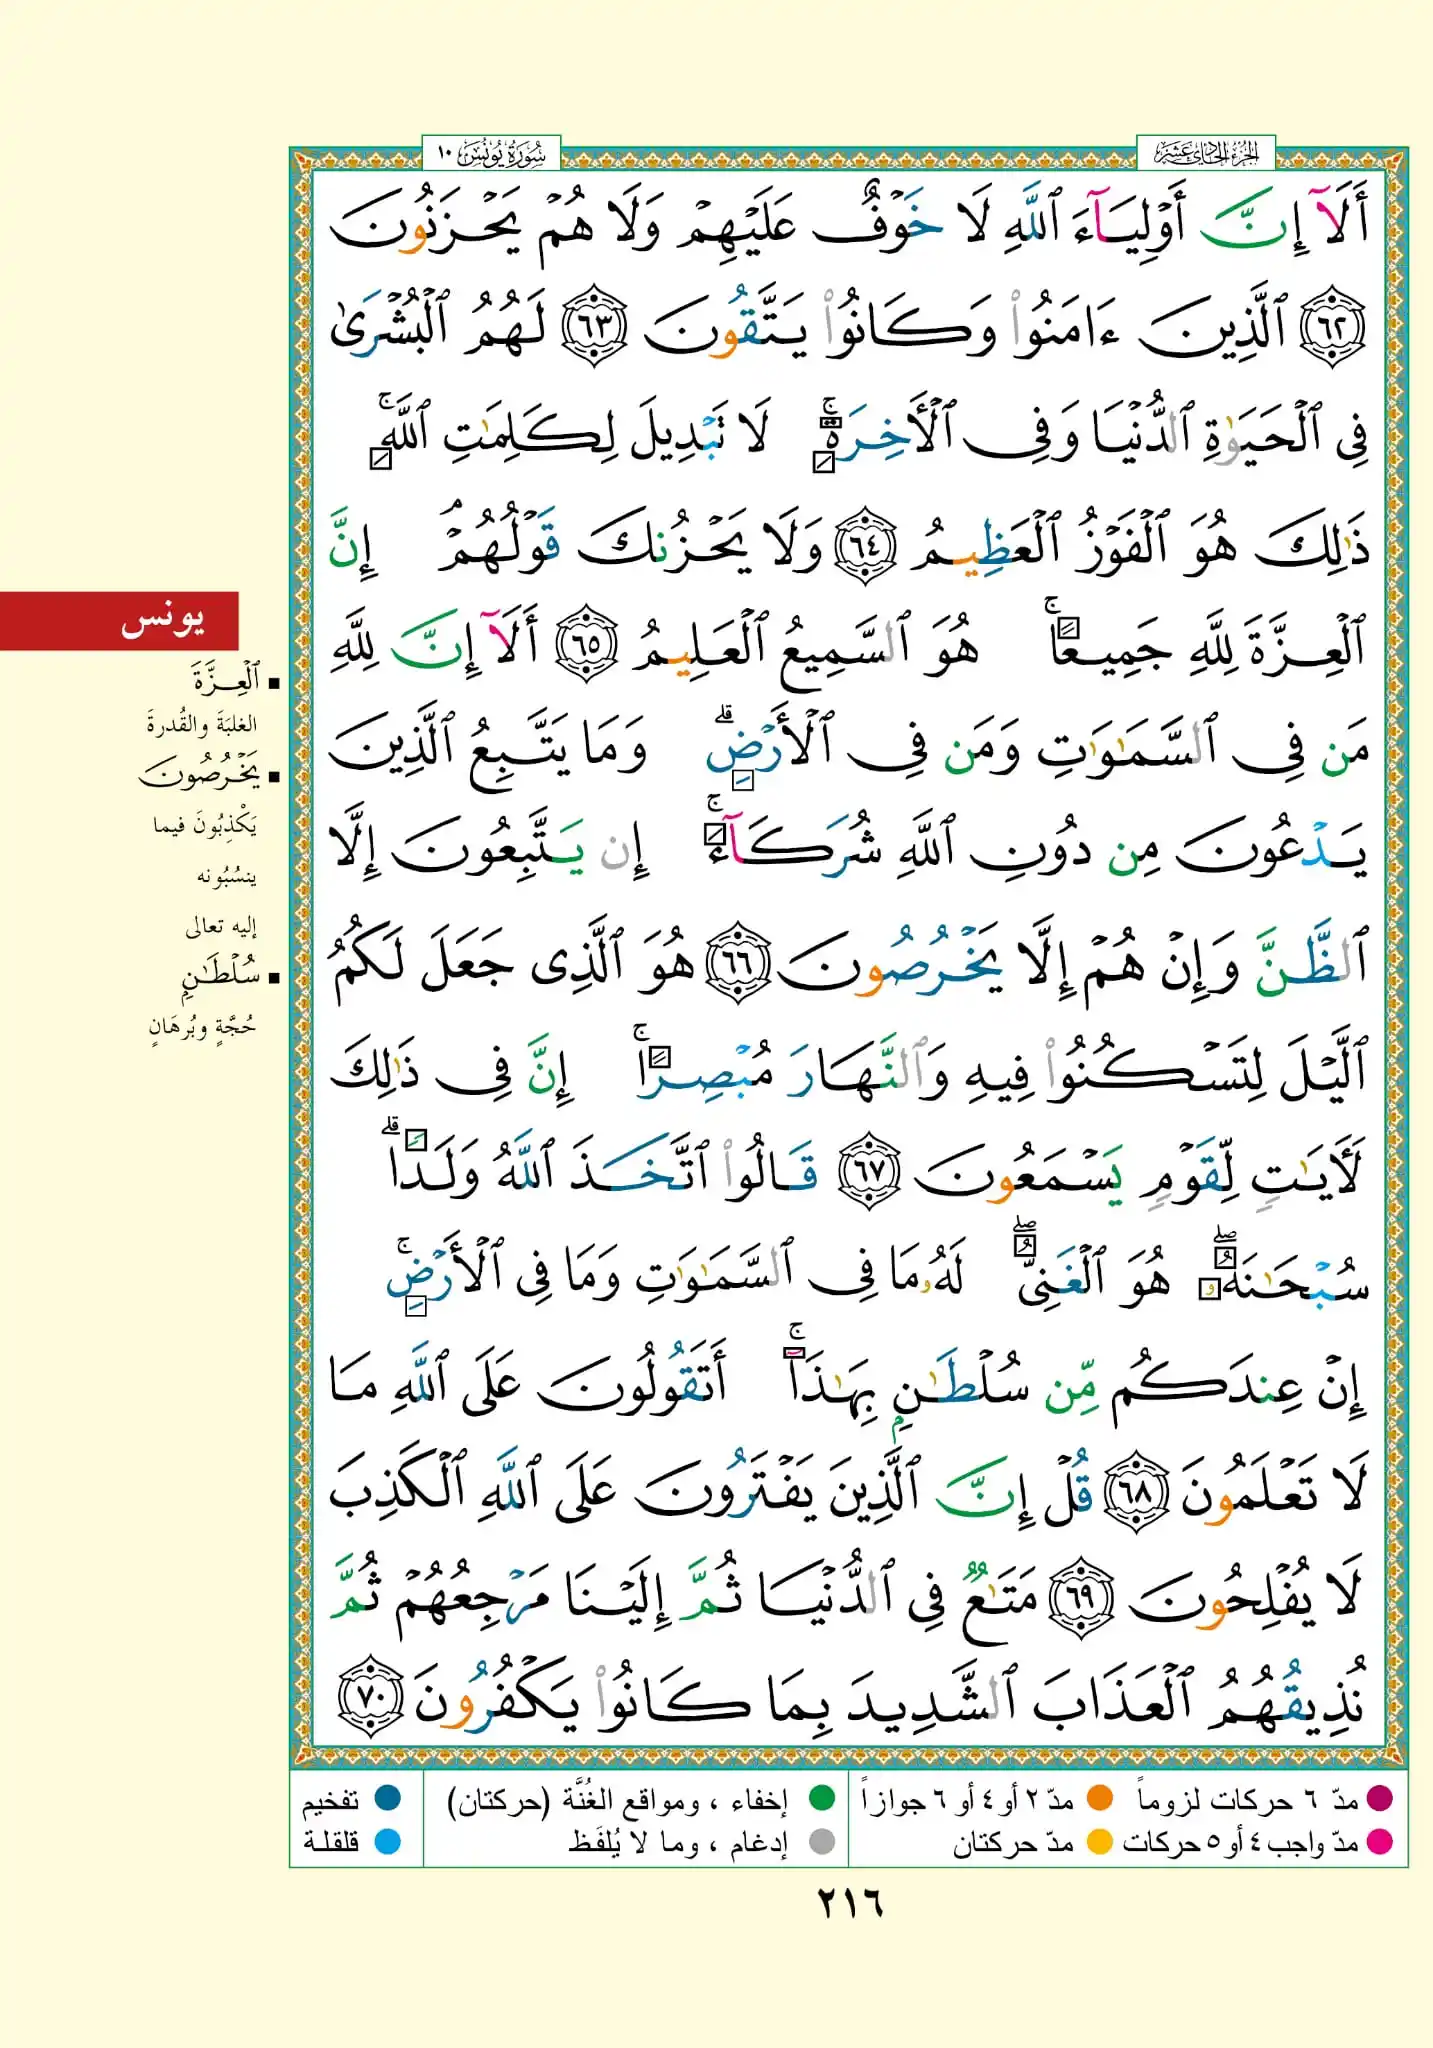 الجزء الحادي عشر
سورة يونس ١٠
أَلَآ إِنَّ أَوْلِيَآءَ ٱللَّهِ لَا خَوْفٌ عَلَيْهِمْ وَلَا هُمْ يَحْزَنُونَ
٦٢ ٱلَّذِينَ ءَامَنُوا۟ وَكَانُوا۟ يَتَّقُونَ ٦٣ لَهُمُ ٱلْبُشْرَىٰ
فِى ٱلْحَيَوٰةِ ٱلدُّنْيَا وَفِى ٱلْأَخِرَةِ ۚ لَا تَبْدِيلَ لِكَلِمَٰتِ ٱللَّهِ ۚ
ذَٰلِكَ هُوَ ٱلْفَوْزُ ٱلْعَظِيمُ ٦٤ وَلَا يَحْزُنكَ قَوْلُهُمْ ۘ إِنَّ
ٱلْعِزَّةَ لِلَّهِ جَمِيعًا ۚ هُوَ ٱلسَّمِيعُ ٱلْعَلِيمُ ٦٥ أَلَآ إِنَّ لِلَّهِ
مَن فِى ٱلسَّمَٰوَٰتِ وَمَن فِى ٱلْأَرْضِ ۗ وَمَا يَتَّبِعُ ٱلَّذِينَ
يَدْعُونَ مِن دُونِ ٱللَّهِ شُرَكَآءَ ۚ إِن يَتَّبِعُونَ إِلَّا
ٱلظَّنَّ وَإِنْ هُمْ إِلَّا يَخْرُصُونَ ٦٦ هُوَ ٱلَّذِى جَعَلَ لَكُمُ
ٱلَّيْلَ لِتَسْكُنُوا۟ فِيهِ وَٱلنَّهَارَ مُبْصِرًا ۚ إِنَّ فِى ذَٰلِكَ
لَأَيَٰتٍ لِّقَوْمٍ يَسْمَعُونَ ٦٧ قَالُوا۟ ٱتَّخَذَ ٱللَّهُ وَلَدًا ۗ
سُبْحَٰنَهُۥ ۖ هُوَ ٱلْغَنِىُّ ۖ لَهُۥ مَا فِى ٱلسَّمَٰوَٰتِ وَمَا فِى ٱلْأَرْضِ ۚ
إِنْ عِندَكُم مِّن سُلْطَٰنٍۭ بِهَٰذَآ ۚ أَتَقُولُونَ عَلَى ٱللَّهِ مَا
لَا تَعْلَمُونَ ٦٨ قُلْ إِنَّ ٱلَّذِينَ يَفْتَرُونَ عَلَى ٱللَّهِ ٱلْكَذِبَ
لَا يُفْلِحُونَ ٦٩ مَتَٰعٌ فِى ٱلدُّنْيَا ثُمَّ إِلَيْنَا مَرْجِعُهُمْ ثُمَّ
نُذِيقُهُمُ ٱلْعَذَابَ ٱلشَّدِيدَ بِمَا كَانُوا۟ يَكْفُرُونَ ٧٠
يونس
▪ ٱلْعِزَّةَ
الغلبَةَ والقُدرةَ
▪ يَخْرُصُونَ
يَكْذِبُونَ فيما
ينسُبُونه
إليه تعالى
▪ سُلْطَٰنٍۭ
حُجَّةٍ وبُرهَانٍ
مدّ ٦ حركات لزوماً
مدّ ٢ أو ٤ أو ٦ جوازاً
إخفاء ، ومواقع الغُنَّة (حركتان)
تفخيم
مدّ واجب ٤ أو ٥ حركات
مدّ حركتان
إدغام ، وما لا يُلفَظ
قلقلة
٢١٦